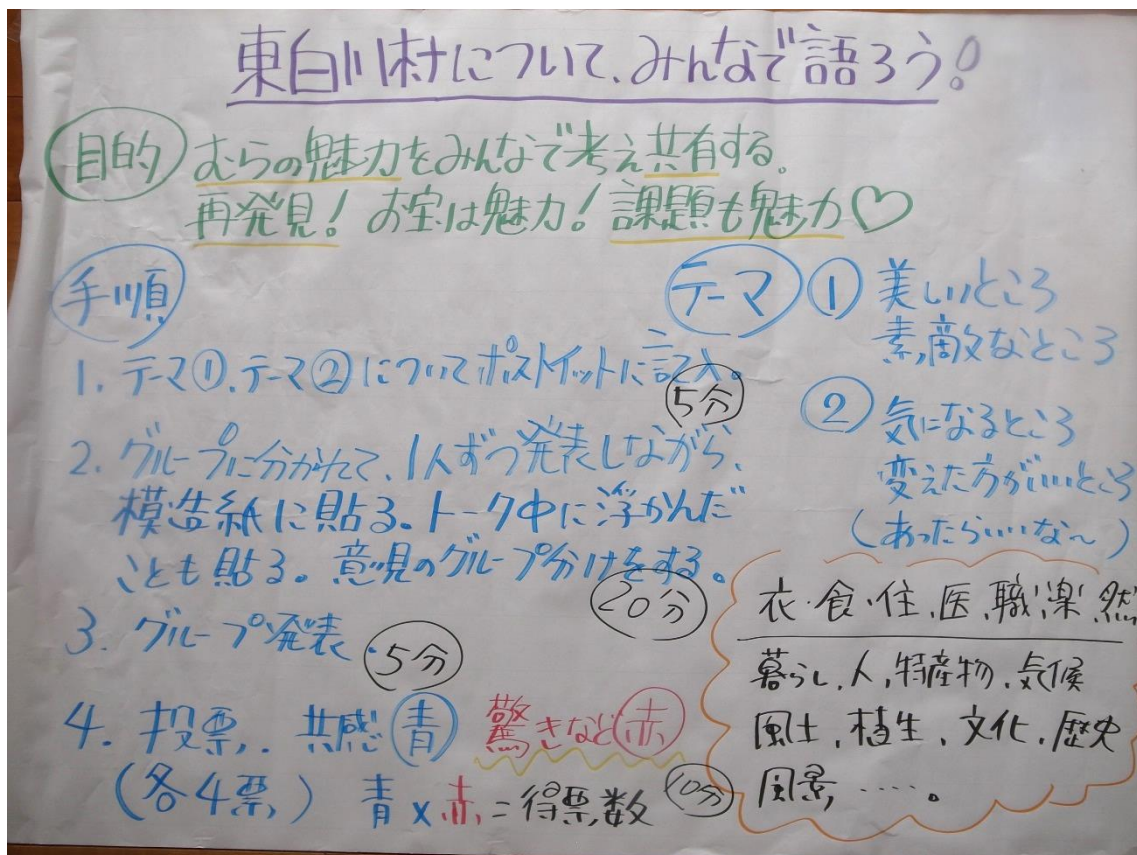 東白川村について、みんなで語ろう!
目的 むらの魅力をみんなで考え共有する。
再発見!お宝は魅力!課題も魅力♡
手順
1. テーマ①、テーマ②についてポストイットに記入。
5分
2. グループに分かれて、1人ずつ発表しながら、
模造紙に貼る。トーク中に浮かんだ
ことも貼る。意見のグループ分けをする。
20分
3. グループ発表.
5分
4. 投票.. 共感青 驚きなど赤
(各4票) 青×赤=得票数 10分
テーマ ① 美しいところ
素敵なところ
② 気になるところ
変えた方がいいところ
(あったらいいな〜)
衣・食・住、医、職、楽、然
暮らし、人、特産物、気候
風土、植生、文化、歴史
風景、‥‥。